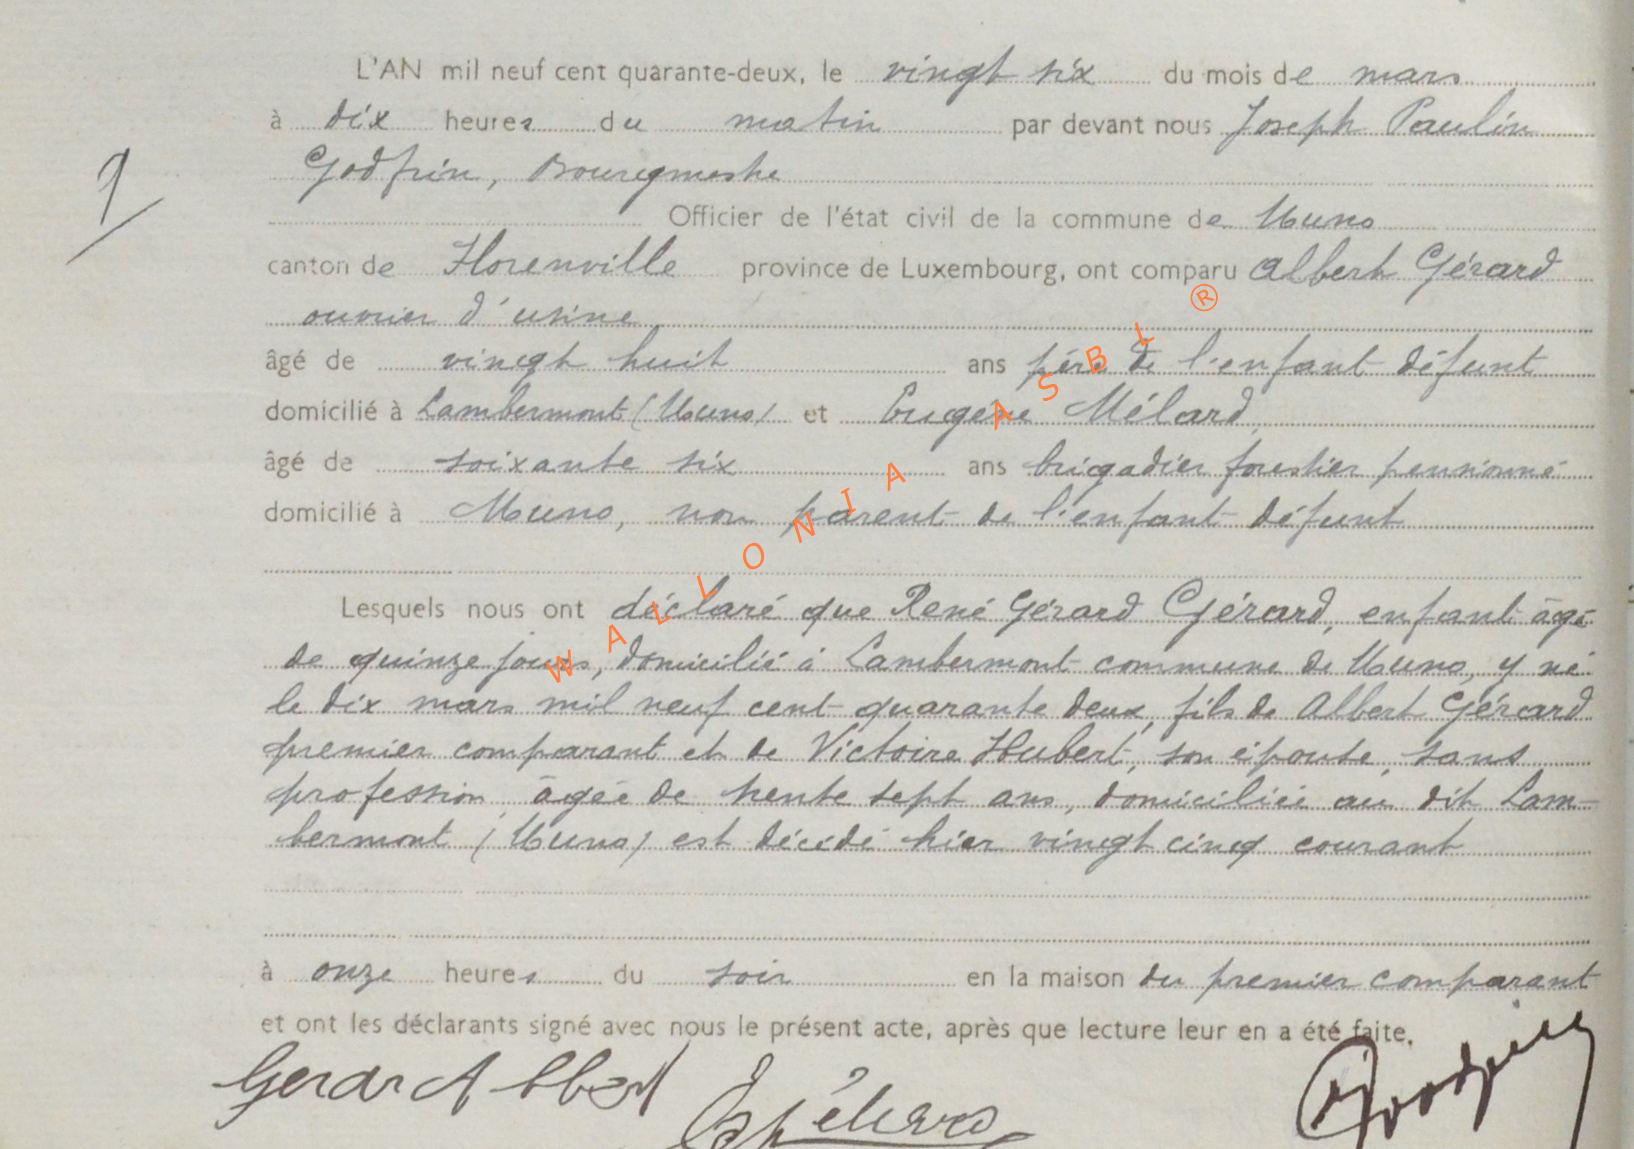 L'AN mil neuf cent quarante-deux, le vingt six du mois de mars
à dix heures du matin par devant nous Joseph Paulin
Godfrin, Bourgmestre
9
Officier de l'état civil de la commune de Muno
canton de Florenville province de Luxembourg, ont comparu Albert Gérard
ouvrier d'usine
âgé de vingt huit ans père de l'enfant défunt
domicilié à Lambermont (Muno) et Eugène Mélard,
âgé de soixante six ans brigadier forestier pensionné
domicilié à Muno, non parent de l'enfant défunt
Lesquels nous ont déclaré que René Gérard Gérard, enfant âgé
de quinze jours, domicilié à Lambermont commune de Muno, y né
le dix mars mil neuf cent quarante deux, fils de Albert Gérard
premier comparant et de Victoire Hubert, son épouse, sans
profession, âgée de trente sept ans, domiciliée au dit Lam-
bermont (Muno) est décédé hier vingt cinq courant
à onze heures du soir en la maison du premier comparant
et ont les déclarants signé avec nous le présent acte, après que lecture leur en a été faite.
Gerard Albert
WALLONIA ASBL ®